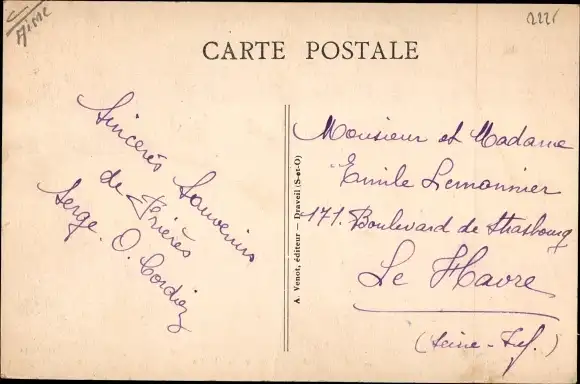 Aisne
2225
CARTE POSTALE
Sincères Souvenirs
de Prières
Serge. O. Cordier
A. Venot, éditeur — Draveil (S-et-O)
Monsieur et Madame
Emile Lemonnier
171. Boulevard de Strasbourg
Le Havre
(Seine-Inf.)